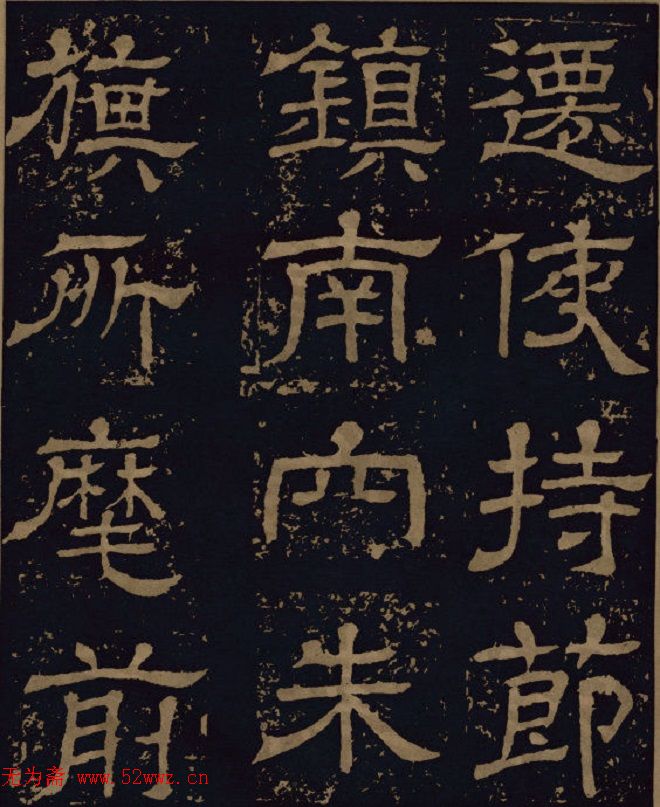 遷使持節
鎮南内朱
旗所麾前
无为斋 www.52wwz.cn